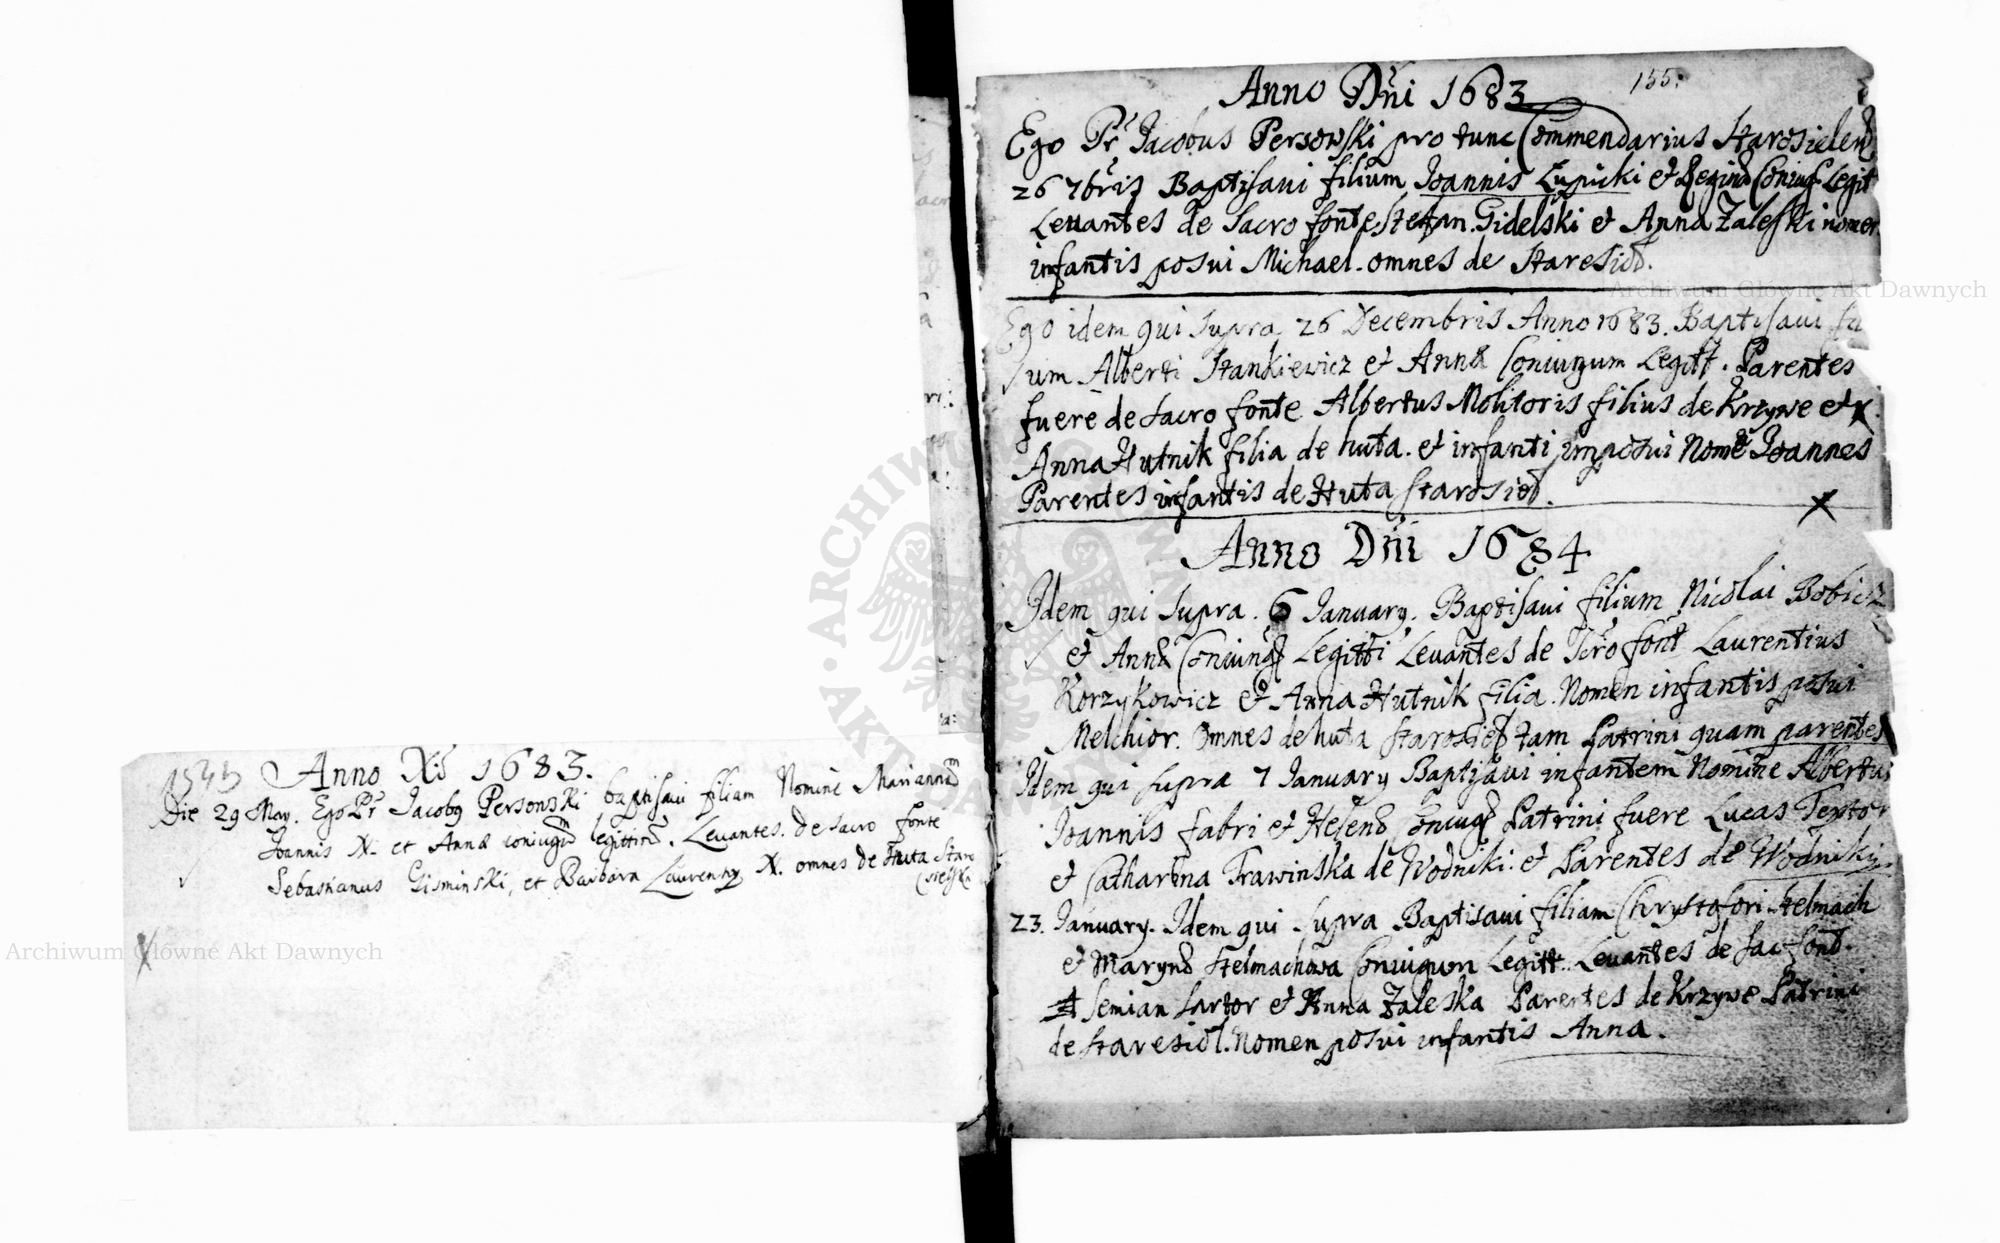 Anno Xi 1683.
Die 29 May. Ego Pr Jacobus Persowski baptisaui filiam Nomine Mariannam
Joannis N. et Annæ coniugum legittim. Leuantes de sacro fonte
Sebastianus Gisminski, et Barbara Laurenty N. omnes de Huta Staro
sielska
155.
Anno Dni 1683
Ego Pr Jacobus Persowski pro tunc Commendarius Starosielen
26 7bris Baptisaui filium Joannis Łupicki et Reginæ Coniug Legit
Leuantes de sacro fonte Stefan Gidelski et Anna Zaleski nomen
infantis posui Michael. omnes de Staresiol.
Ego idem qui supra 26 Decembris Anno 1683. Baptisaui fi
ium Alberti Stankiewicz et Annæ Coniugum Legitt. Parentes
fuere de sacro fonte Albertus Molitoris filius de Krzywe et
Anna Hutnik filia de huta. et infanti imposui Nome Joannes
Parentes infantis de Huta Starosiol.
Anno Dni 1684
Idem qui supra. 6 January. Baptisaui filium Nicolai Bobicz
et Annæ Coniung Legitti Leuantes de Scro font Laurentius
Korzykowicz et Anna Hutnik filia. Nomen infantis posui
Melchior. Omnes de huta Starosiel tam Patrini quam parentes
Idem qui supra 7 January Baptisaui infantem Nomine Albertus
Joannis Fabri et Helenæ Coniug Patrini fuere Lucas Textor
et Catharina Trawinska de Wodniki. et Parentes de Wodniki
23. January. Idem qui supra Baptisaui filiam Chrystofori Stelmach
et Marynæ Stelmachowa Coniugum Legitt. Leuantes de sac font.
Semian Sartor et Anna Zaleska Parentes de Krzywe Patrini
de Staresiol. Nomen posui infantis Anna.
Archiwum Główne Akt Dawnych
Archiwum Główne Akt Dawnych